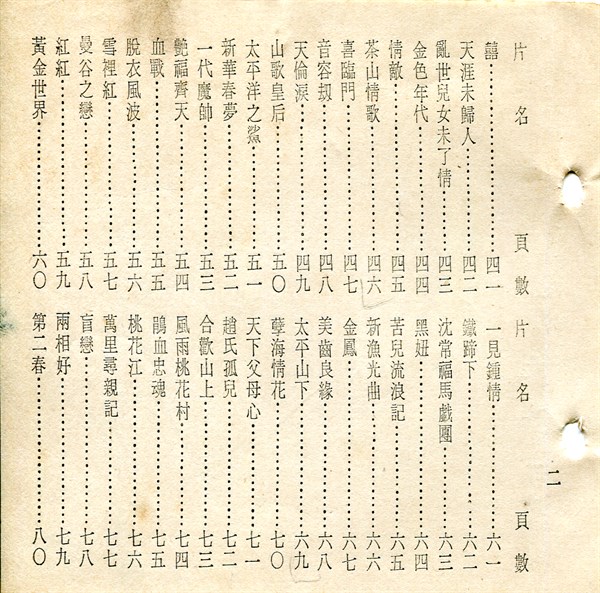 片名 頁數
囍 四一
天涯未歸人 四二
亂世兒女未了情 四三
金色年代 四四
情敵 四五
茶山情歌 四六
喜臨門 四七
音容劫 四八
天倫淚 四九
山歌皇后 五〇
太平洋之鯊 五一
新華春夢 五二
一代魔帥 五三
艷福齊天 五四
血戰 五五
脫衣風波 五六
雪裡紅 五七
曼谷之戀 五八
紅紅 五九
黃金世界 六〇
片名 頁數
一見鍾情 六一
鐵蹄下 六二
沈常福馬戲團 六三
黑妞 六四
苦兒流浪記 六五
新漁光曲 六六
金鳳 六七
美齒良緣 六八
太平山下 六九
孽海情花 七〇
天下父母心 七一
趙氏孤兒 七二
合歡山上 七三
風雨桃花村 七四
鵑血忠魂 七五
桃花江 七六
萬里尋親記 七七
盲戀 七八
兩相好 七九
第二春 八〇
二